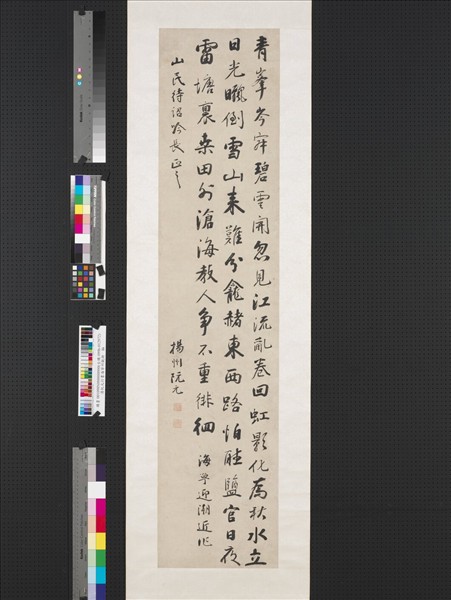 青峯岑寂碧雲開忽見江流亂卷回虹影化爲秋水立
日光曬倒雪山来難分龕赭東西路怕聽鹽官日夜
雷塘裏桑田外滄海教人争不重徘徊 海寧迎潮近作
山民待詔吟長正之 揚州阮元